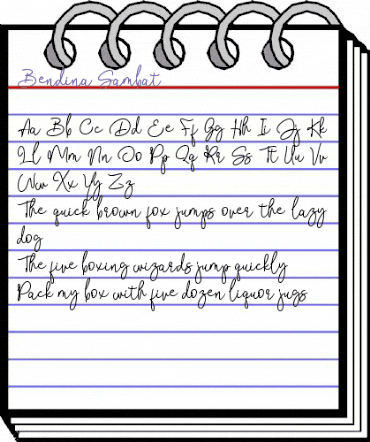 Bendina Sambat
Aa Bb Cc Dd Ee Ff Gg Hh Ii Jj Kk
Ll Mm Nn Oo Pp Qq Rr Ss Tt Uu Vv
Ww Xx Yy Zz
The quick brown fox jumps over the lazy
dog
The five boxing wizards jump quickly
Pack my box with five dozen liquor jugs